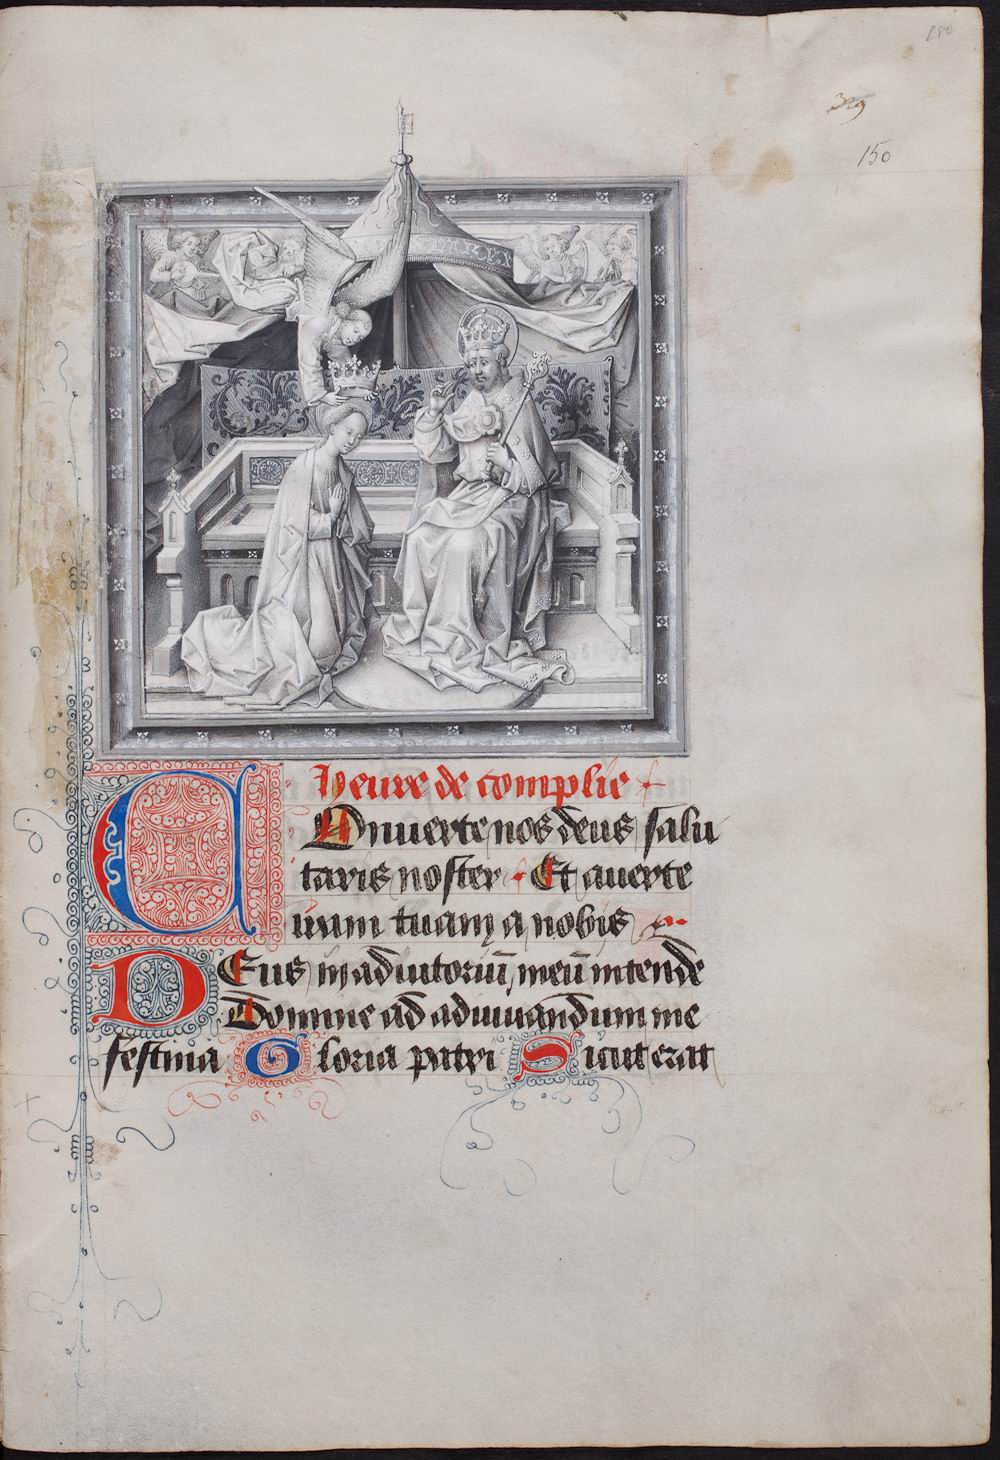 150
329
150
Heure de complie
Conuerte nos deus salu
taris noster Et auerte
iram tuam a nobis
Deus in adiutoriū meū intende
Domine ad adiuuandum me
festina Gloria patri Sicut erat